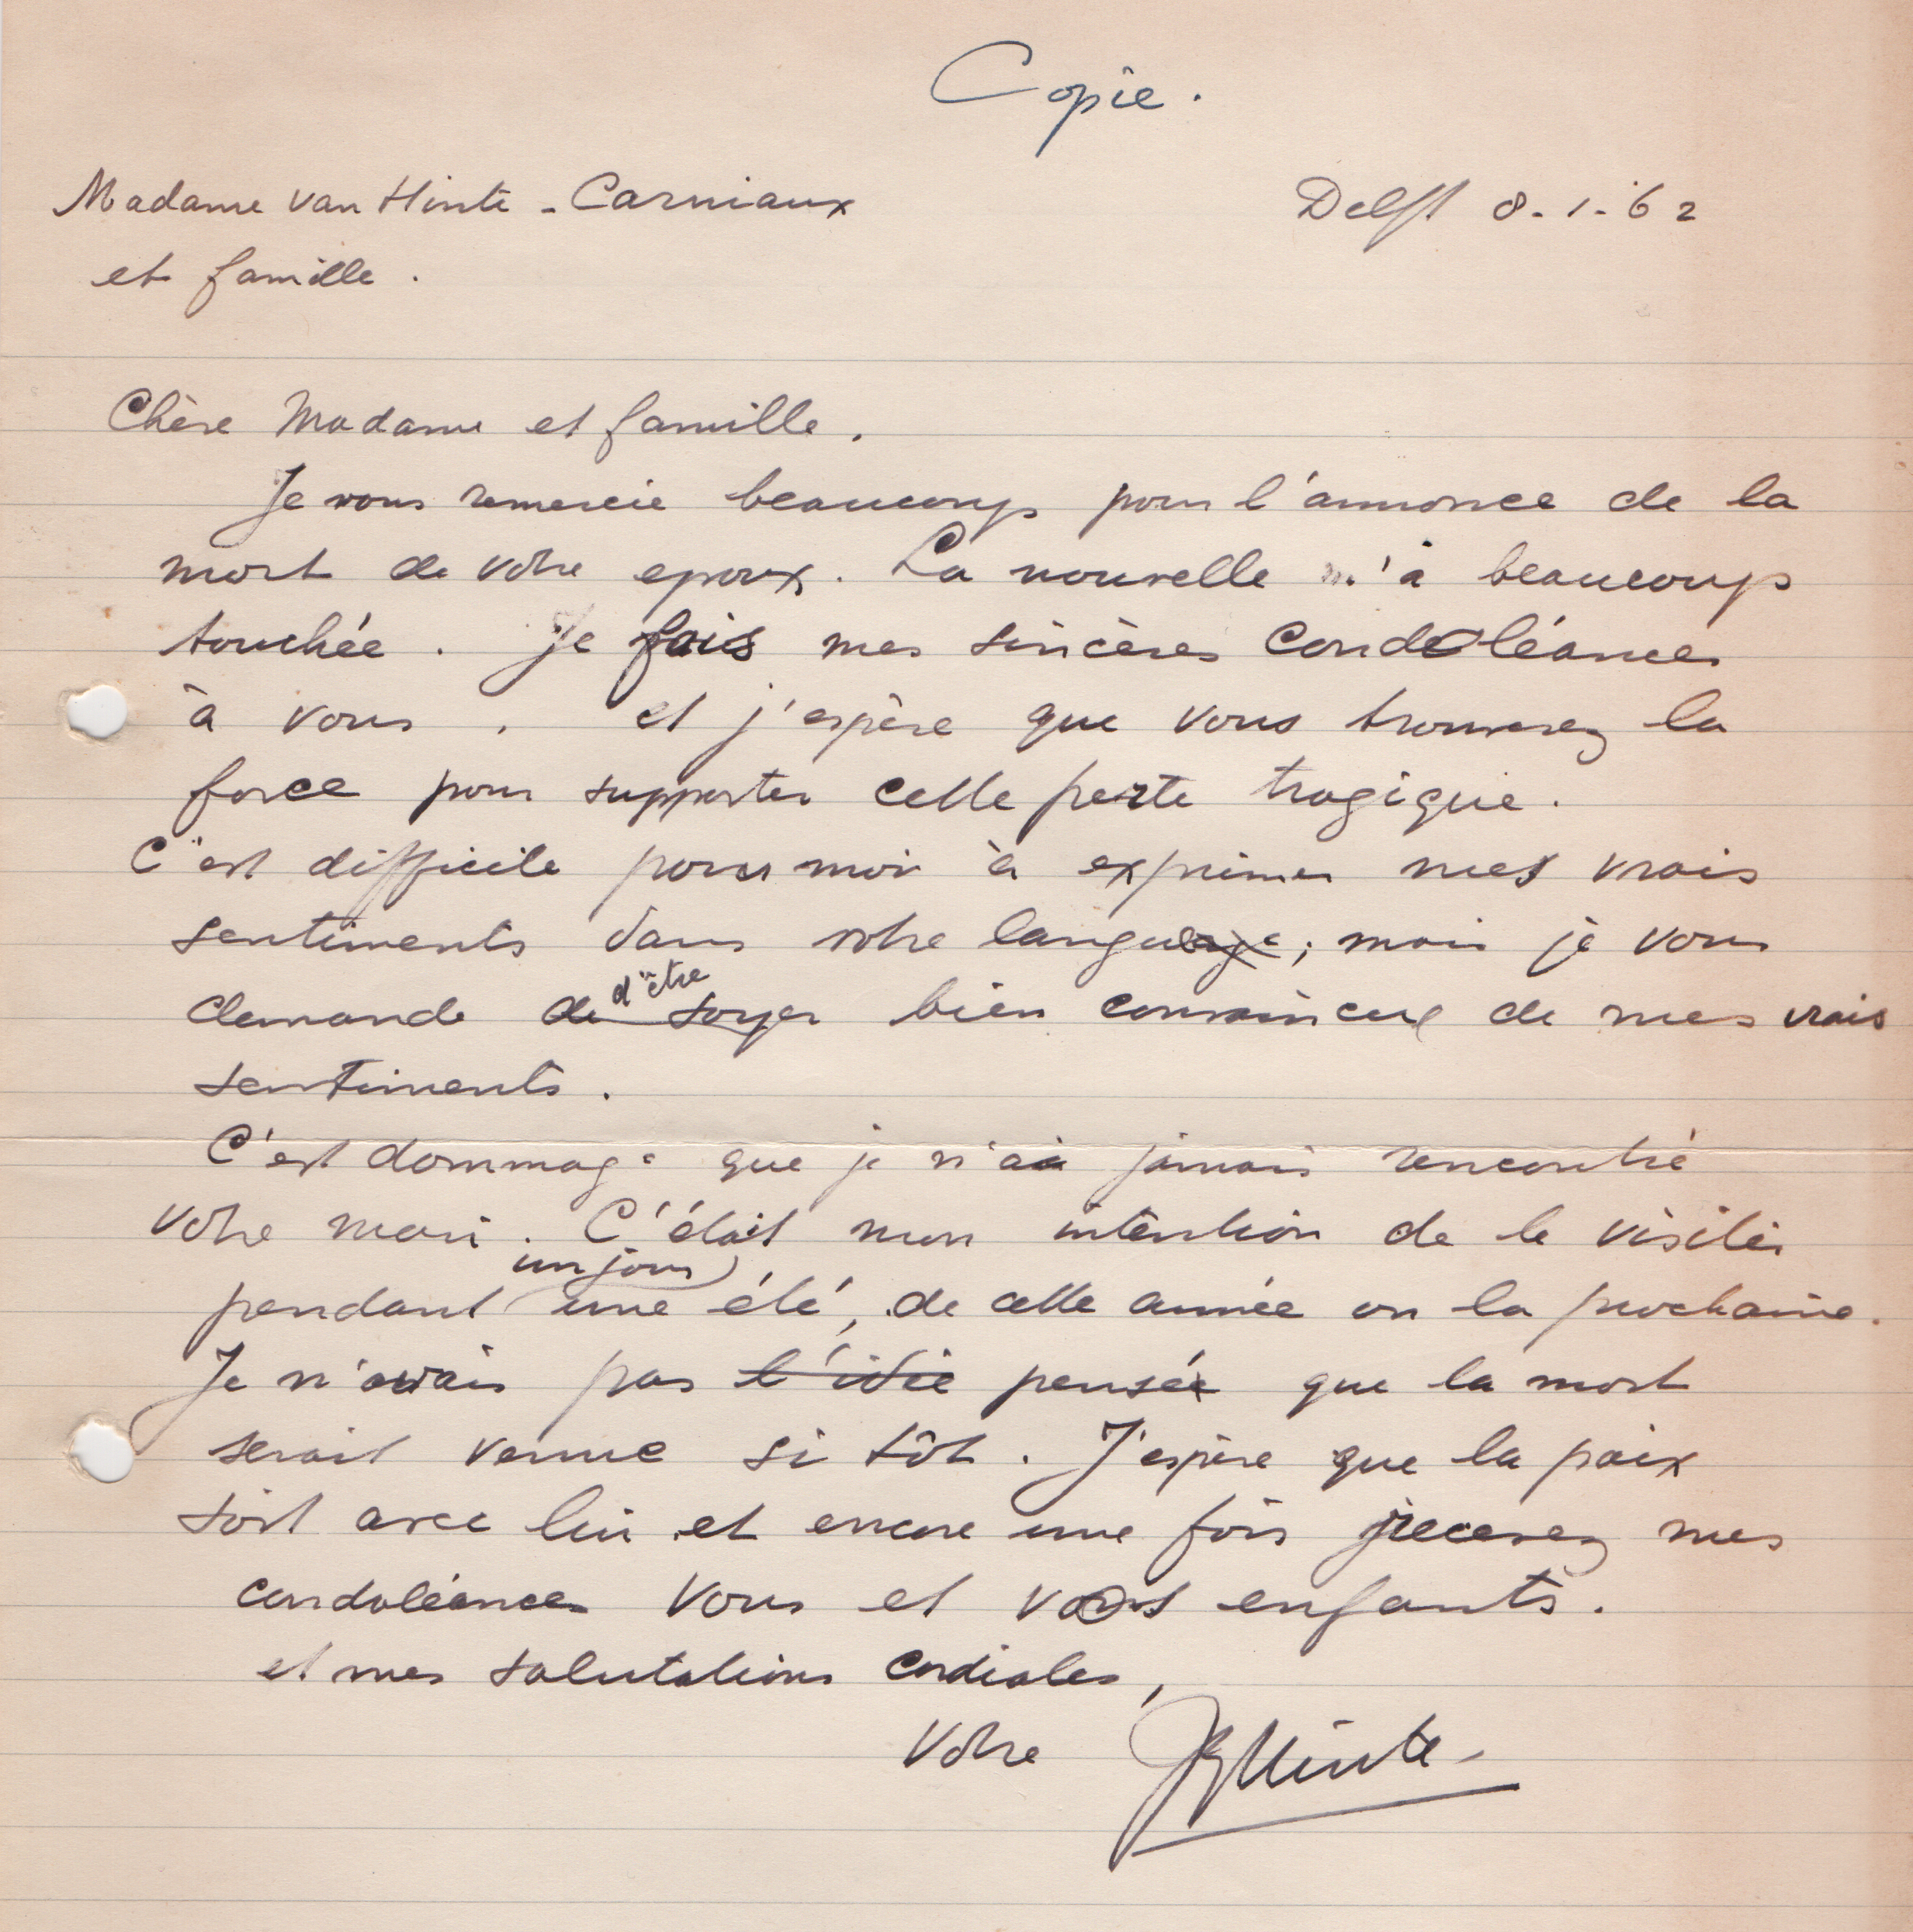 Copie.
Madame van Hinte - Carniaux
Delft 8-1-'62
et famille.
Chère Madame et famille.
Je vous remercie beaucoup pour l'annonce de la
mort de votre epoux. La nouvelle m'a beaucoup
touchée. Je fais mes sincères condoléances
à vous, et j'espère que vous trouverez la
force pour supporter cette perte tragique.
C'est difficile pour moi à exprimer mes vrais
sentiments dans votre langue; mais je vous
d'être
demande de soyer bien convaincu de mes vrais
sentiments.
C'est dommage que je n'ai jamais rencontré
votre mari. C'était mon intention de le visiter
un jour
pendant une été, de cette année ou la prochaine.
Je n'avais pas l'idée pensé que la mort
serait venue si tôt. J'espère que la paix
soit avec lui et encore une fois recevez mes
condoléances vous et vos enfants.
et mes salutations cordiales,
Votre Hinte